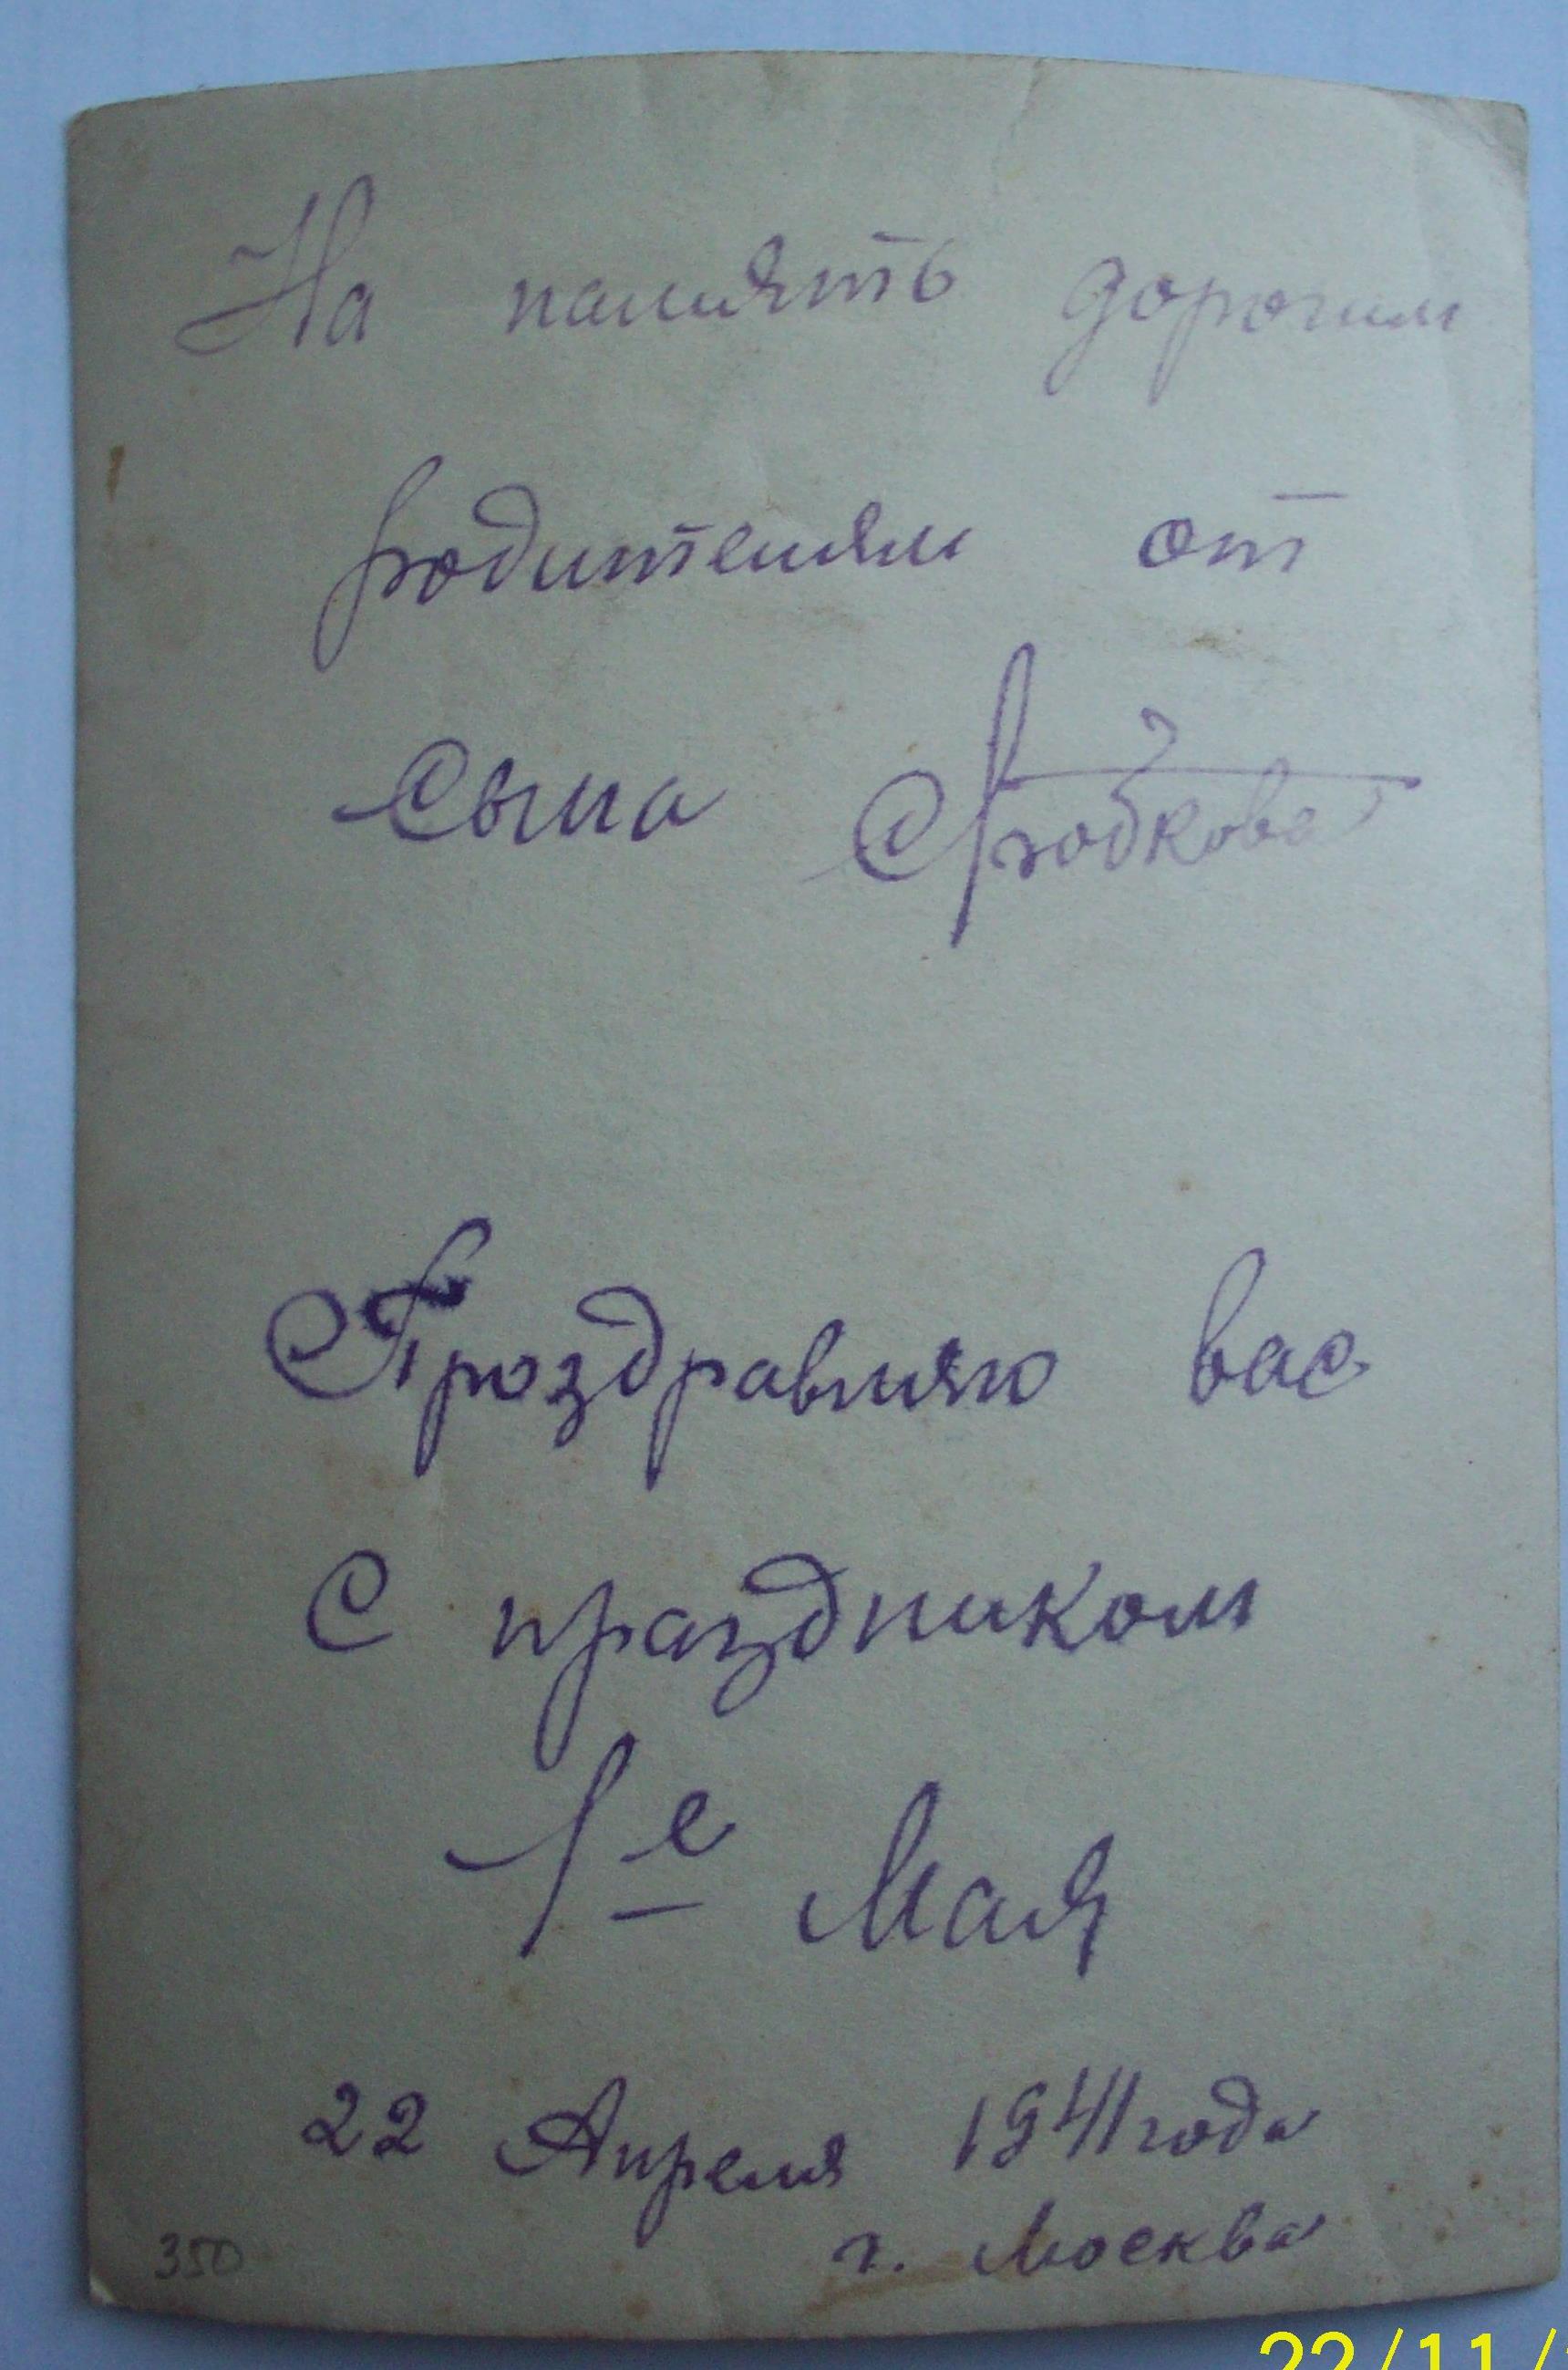 На память дорогим
родителям от
сына
Проздравляю вас
С праздником
1е Мая
22 Апреля 1941 года
г. Москва
350
22/11/